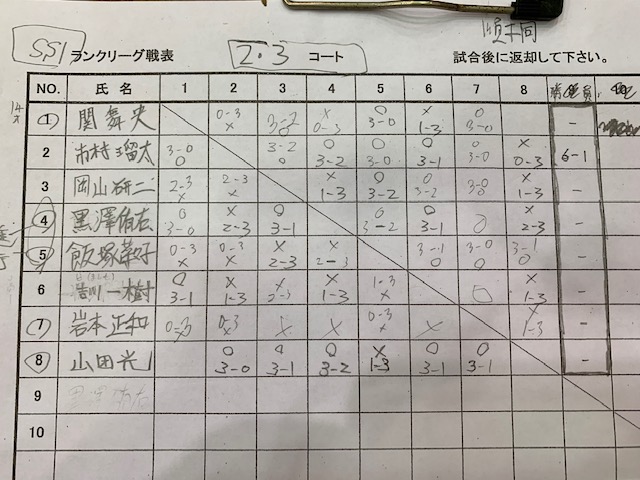 S51 ランクリーグ戦表 2・3 コート 順不同
試合後に返却して下さい。
NO. 氏名 1 2 3 4 5 6 7 8
1 関 舞央 0-3 × 3-2 ○ × 0-3 ○ 3-0 × 1-3 ○ 3-0 -
2 市村 瑠太 3-0 ○ 3-2 ○ ○ 3-2 ○ 3-0 ○ 3-1 ○ 3-0 × 0-3 6-1
3 岡山 研二 2-3 × 2-3 × × 1-3 ○ 3-2 ○ 3-2 3-0 ○ × 1-3 -
4 黒澤 侑右 ○ 3-0 × 2-3 ○ 3-1 ○ 3-2 ○ 3-1 ○ × 2-3 -
5 飯塚 0-3 × 0-3 × × 2-3 × 2-3 3-1 ○ 3-0 ○ 3-1 ○ -
6 一樹 ○ 3-1 × 1-3 × 2-3 × 1-3 1-3 × ○ × 1-3 -
7 岩本 正和 0-3 × 0-3 × × × 0-3 × × × 1-3 -
8 山田 ○ 3-0 ○ 3-1 ○ 3-2 × 1-3 ○ 3-1 ○ 3-1 -
9
10